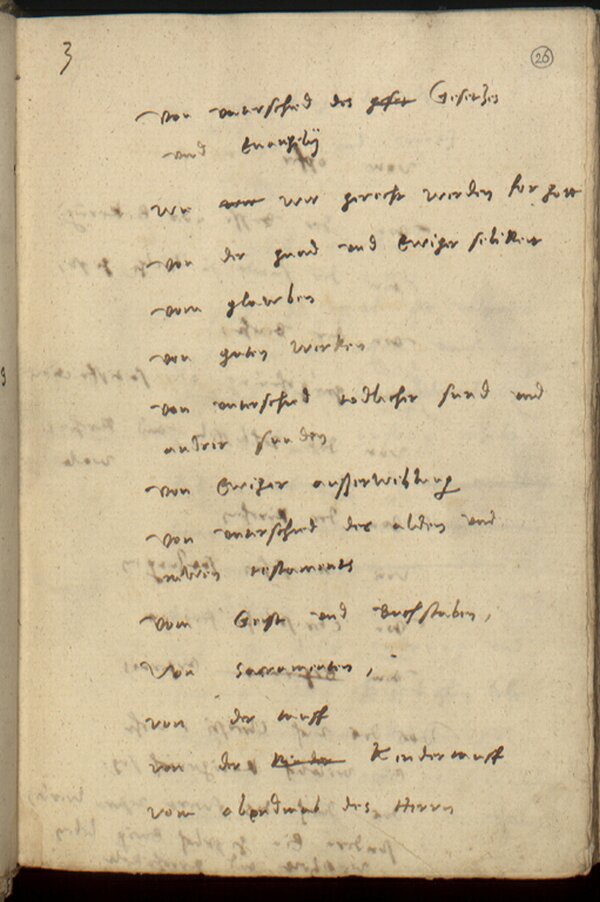 3
26
Von unterschied des Gesetzes
und Euangelij
Wie wir gerecht werden for gott
Von der gnad und Ewiger selikeit
Vom glauben
Von guten werken
Von unterschied todlicher sund und
andrer sunden
Von Ewiger
Von unterschied des alden und
testaments
Vom Geist und Buchstaben,
Von Sacramenten,
Von der tauff
Von der Kindertauff
Vom abendmal des Herrn